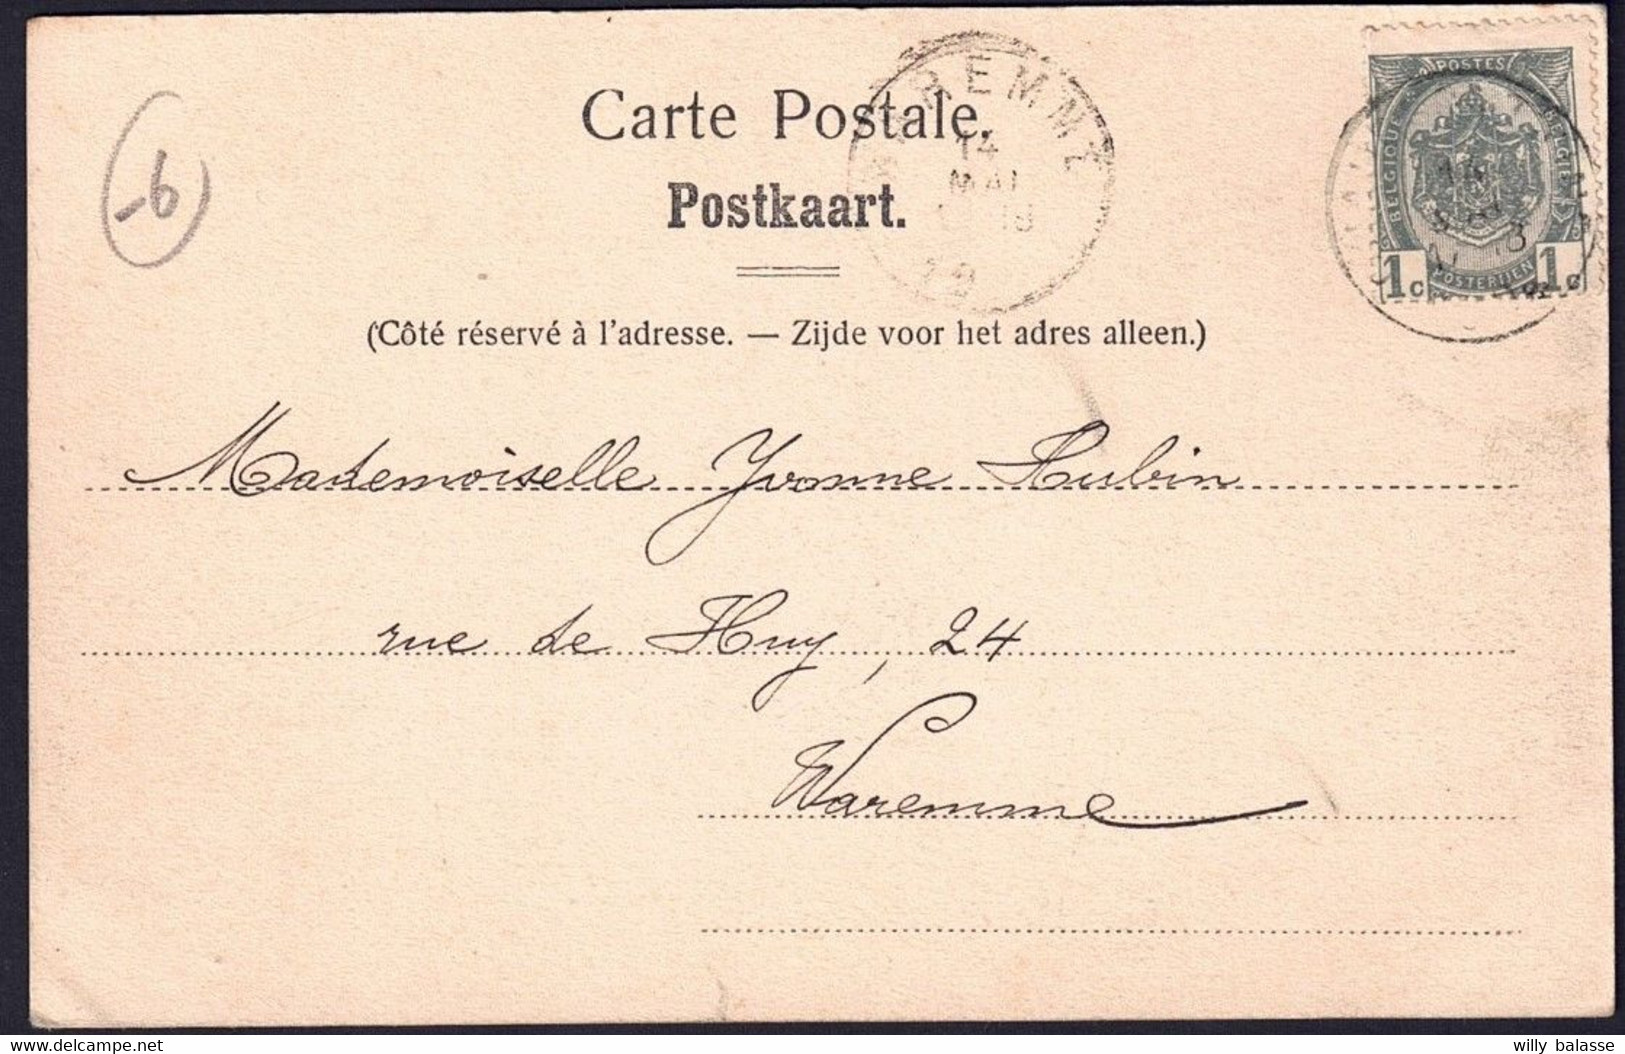 Carte Postale.
Postkaart.
(Côté réservé à l'adresse. — Zijde voor het adres alleen.)
-6
14
MAI
19
POSTES
BELGIQUE
BELGIE
POSTERIJEN
1c 1c
Mademoiselle Yvonne Aubin
rue de Huy, 24
Waremme
willy balasse